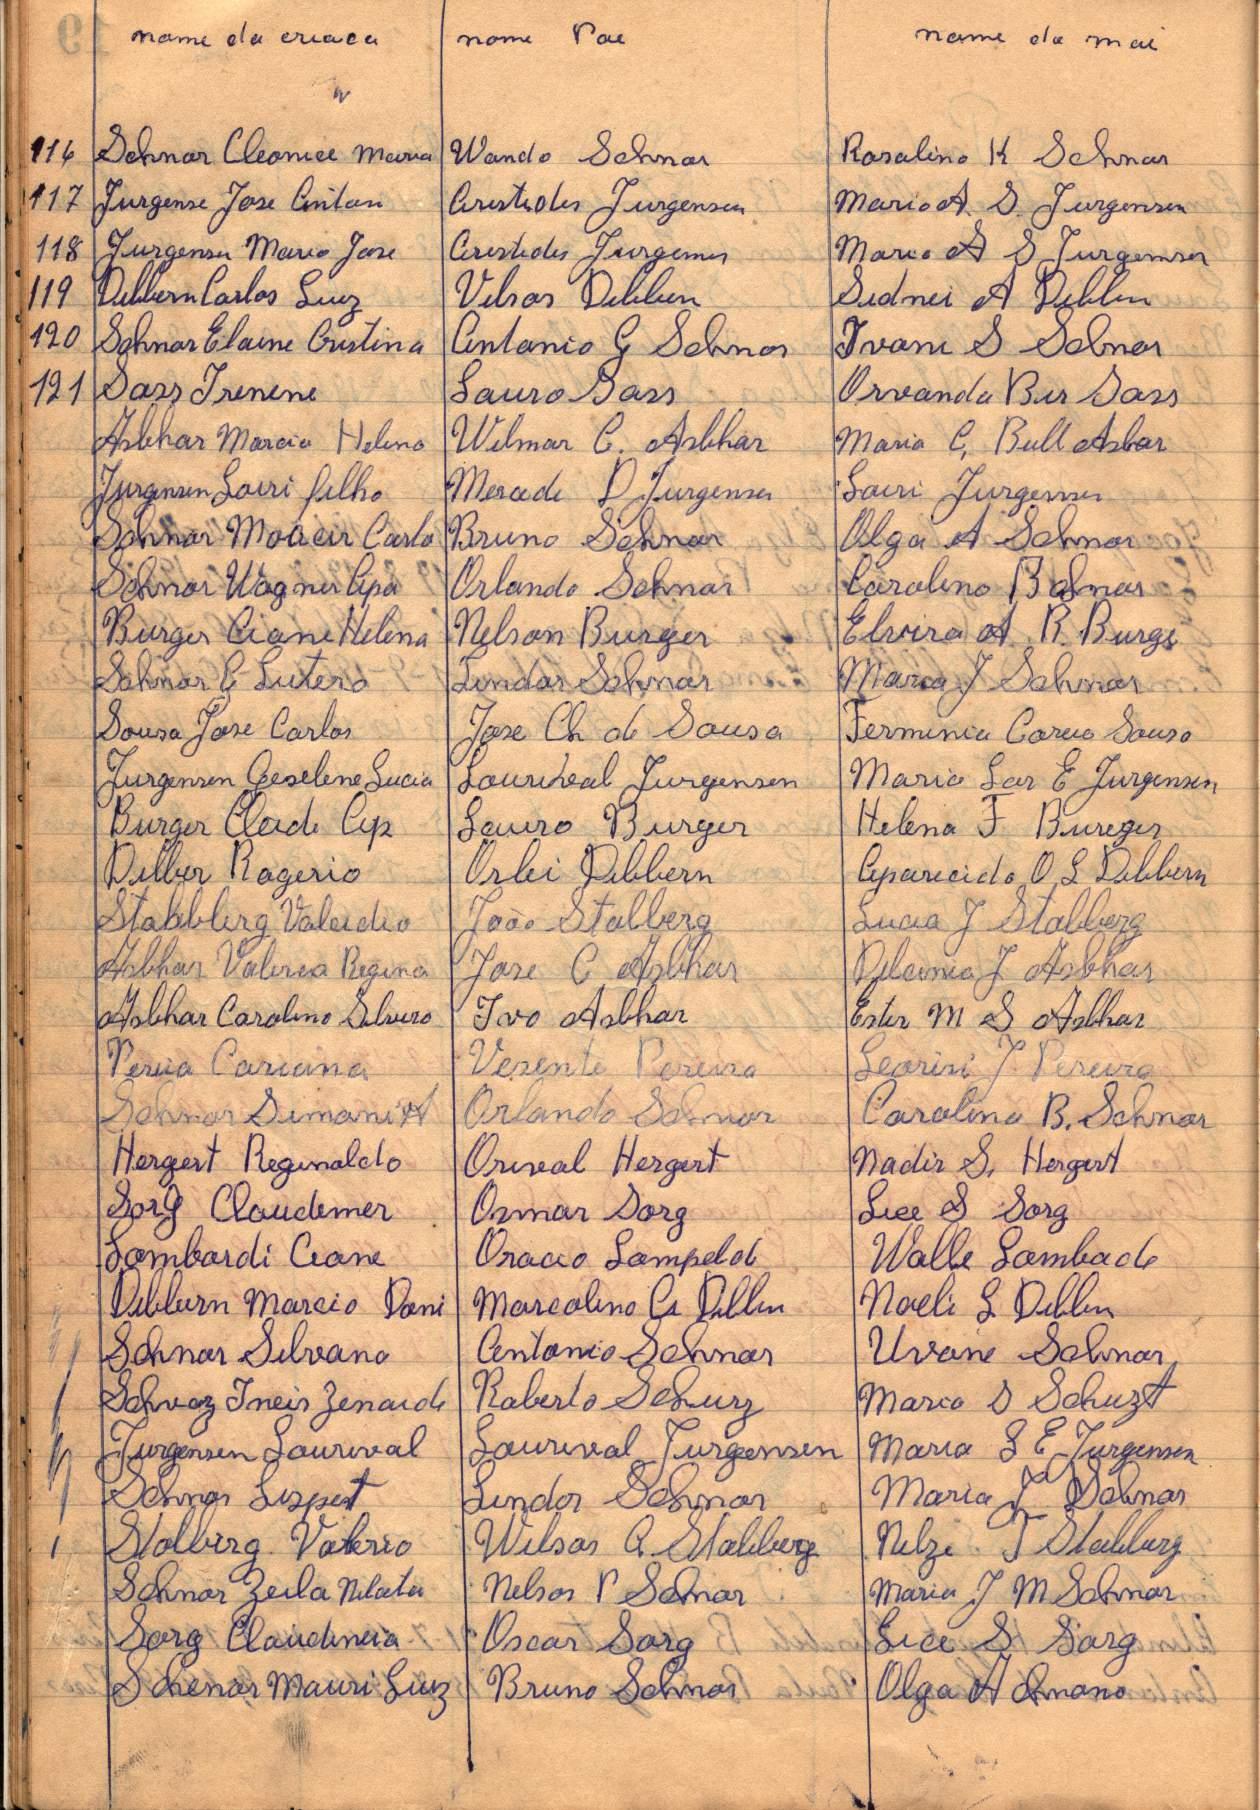 nome da criaca nome Pae nome da mai
116 Schnor Cleonice Maria Wando Schnor Rosalino K Schnor
117 Jurgense Jose Antan Aristides Jurgensen Maria A. S. Jurgensen
118 Jurgensen Mario Jose Aristides Jurgemes Maria A S Jurgemsen
119 Dibbern Carlos Luiz Vilsas Dibbern Sidnei A Dibbern
120 Schnor Elaine Cristina Antonio G Schnor Ivone S Schnor
121 Sass Irenene Lauro Sass Orvanda Bur Sass
Asbhar Marcia Helena Wilmar C. Asbhar Maria C, Bull Asbar
Jurgensen Louri filho Mercede D Jurgensen Louri Jurgensen
Schnor Moacir Carlo Bruno Schnor Olga A Schnor
Schnor Wagner Apa Orlando Schnor Carolino B Schnor
Burger Ciane Helena Nelson Burger Elvira A. R. Burge
Schnor G Lutero Lindor Schnor Maria J Schnor
Sousa Jose Carlos Jose Ch de Sousa Ferminia Souso
Jurgensen Geselene Lucia Lourival Jurgensen Maria Lar E Jurgensen
Burger Cleide Ap Lauro Burger Helena F Bureger
Dibber Rogerio Orlei Dibbern Aparecida O L Dibbern
Stabblerg Valcidio João Stalberg Lucia J Stalberg
Asbhar Valeria Regina Jose C Asbhar Dilcinia J Asbhar
Asbhar Carolino Silvero Ivo Asbhar Ester M S Asbhar
Periia Cariana Vesente Pereira J Pereira
Schnor Simoni A Orlando Schnor Carolina B. Schnor
Hergert Reginaldo Orival Hergert Nadir S, Hergert
Sorg Claudemer Osmar Sorg Lice S Sorg
Lombardi Ciane Oracio Lampeldi Walle Lombade
Dibburn Marcio Dani Marcolino A Dibbin Noeli L Dibbin
Schnor Silvano Antonio Schnor Uvone Schnor
Schvoz Ineis Zenaide Roberto Schurz Maria S Schuzt
Jurgensen Lourival Lourival Jurgensen Maria L E Jurgensen
Schnor Lispert Lindor Schnor Maria J Schnor
Stolberg Valerio Wilsas A Stabberg Nelze T Stabburg
Schnor Zeila Nilceta Nelsos P Schnor Maria J M Schnor
Sorg Claudineia Oscar Sorg Lice S Sorg
Schenor Mauri Luiz Bruno Schnor Olga A Chnano